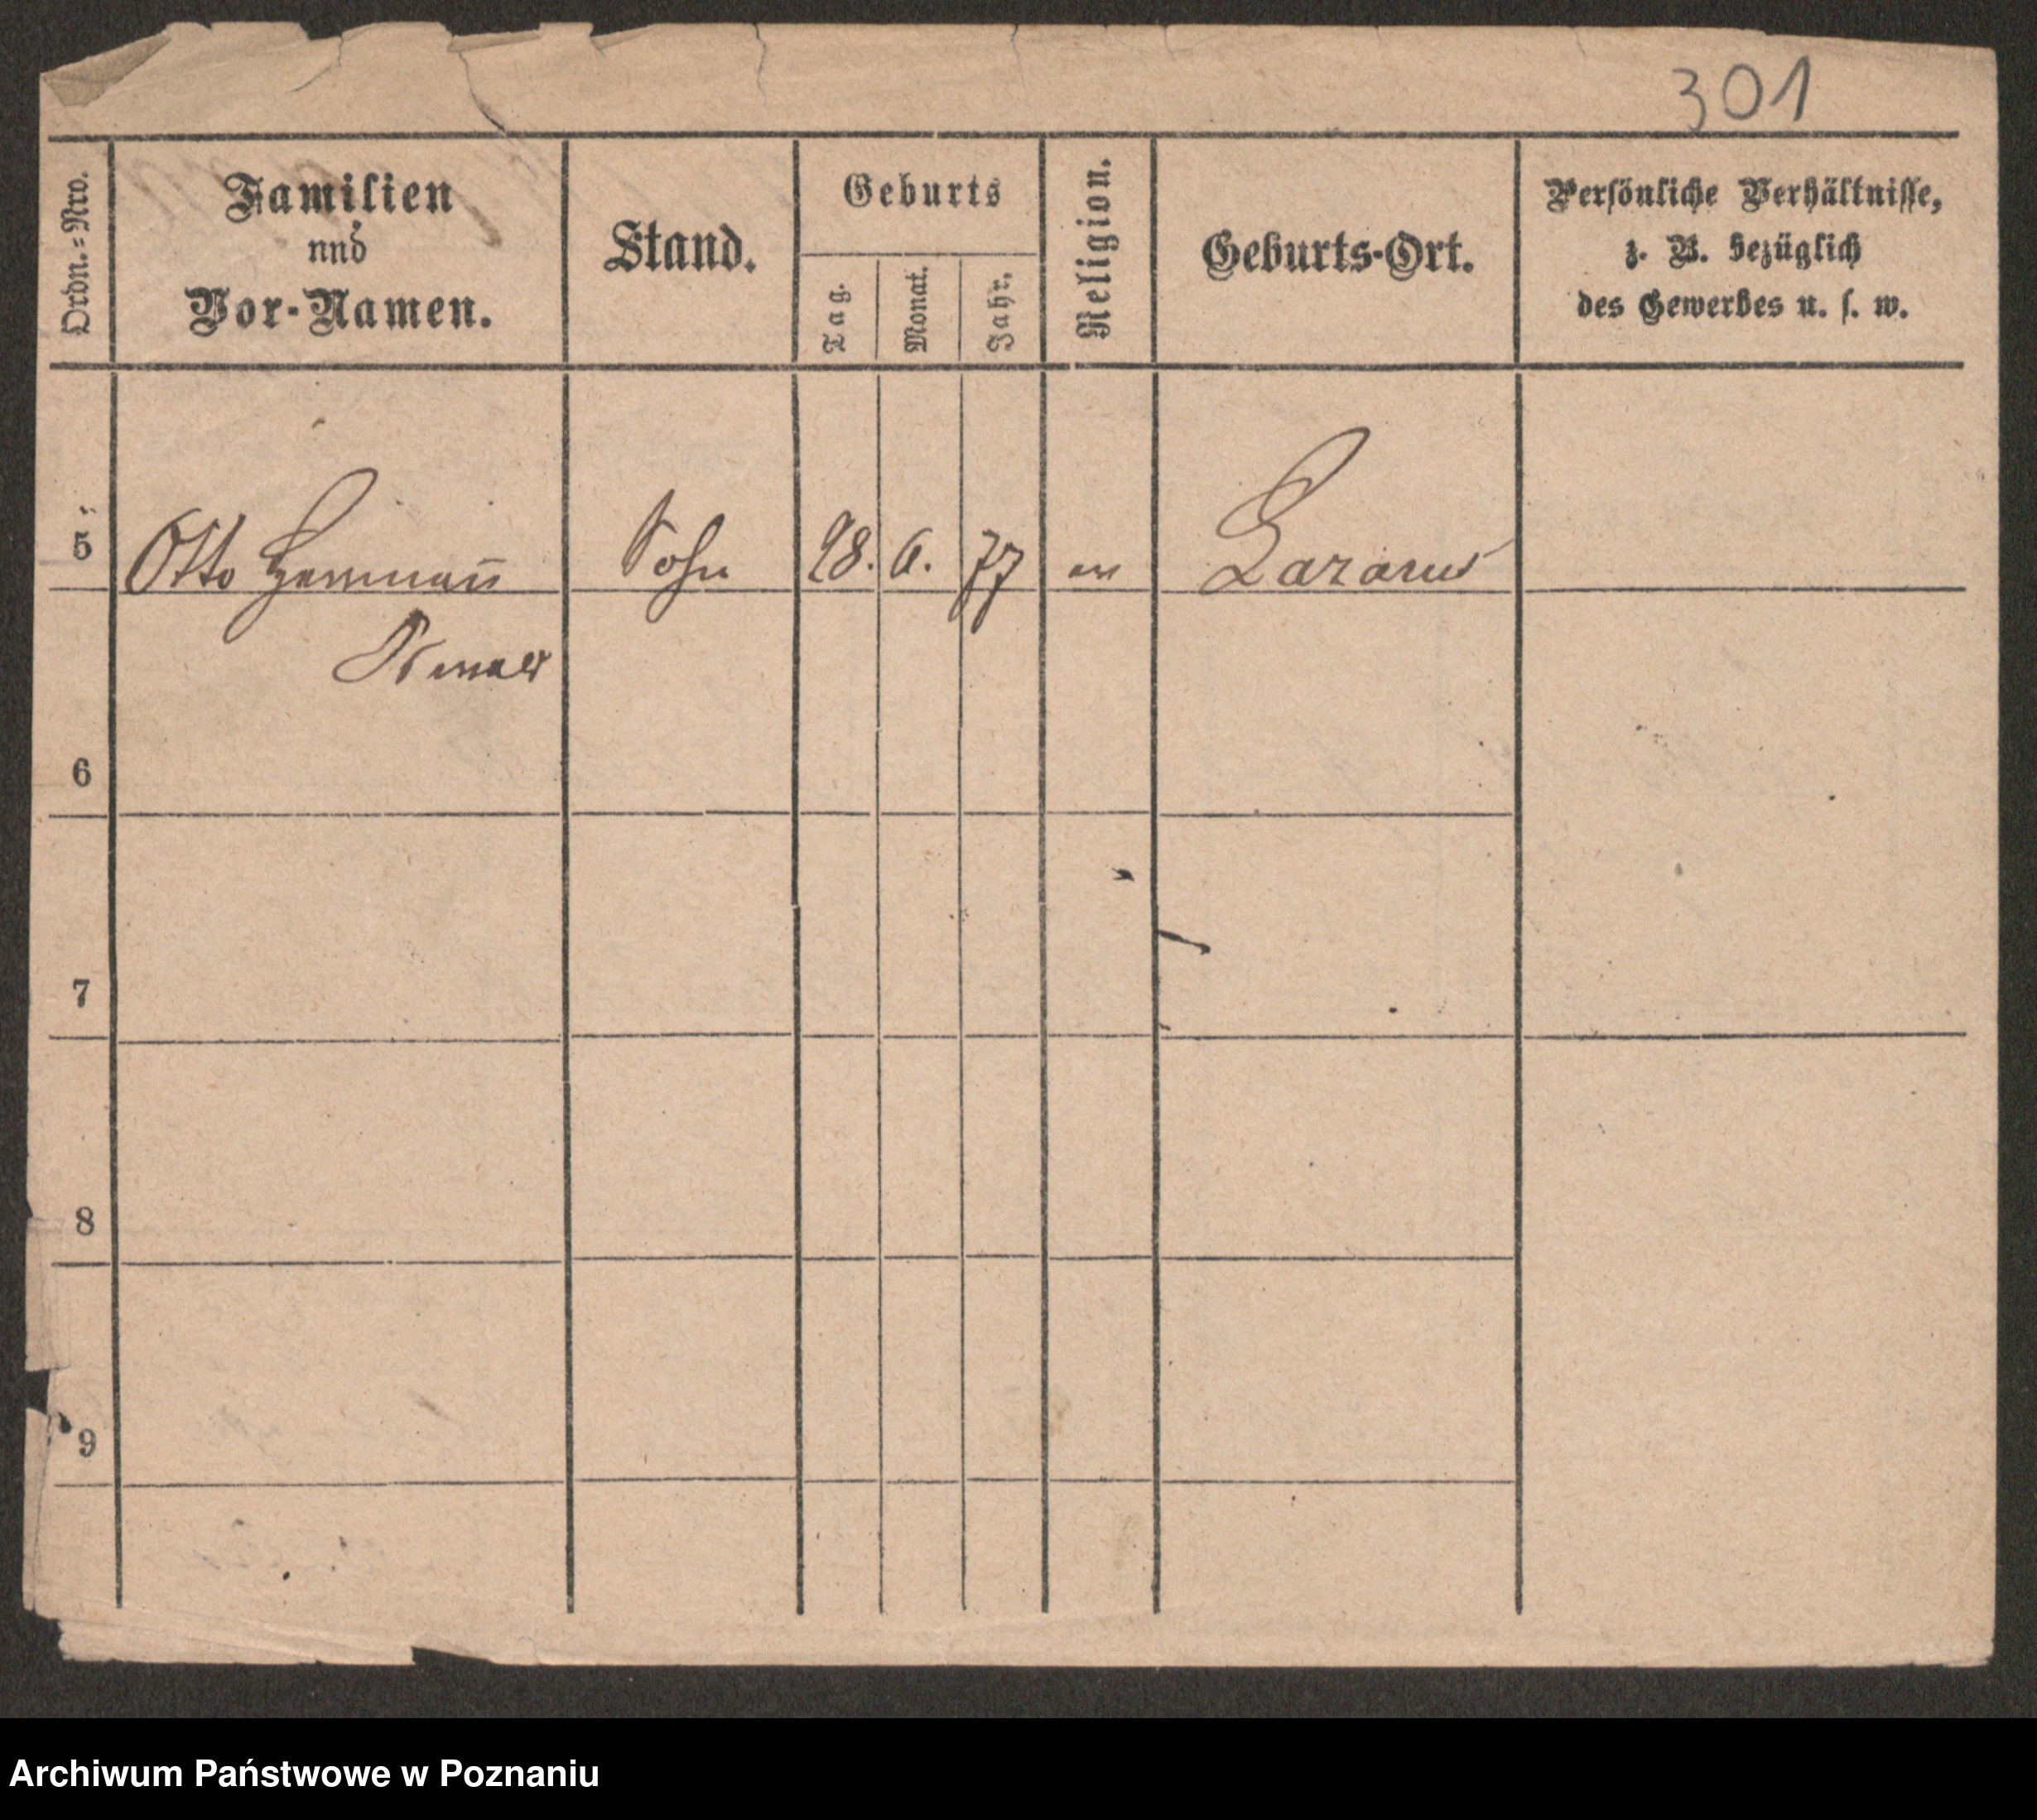 301
Ordn.=Nro.
Familien
nnd
Vor-Namen.
Stand.
Geburts
Tag.
Monat.
Jahr.
Religion.
Geburts-Ort.
Persönliche Verhältnisse,
z. B. bezüglich
des Gewerbes u. s. w.
5 Otto Hermann Sohn 28. 6. 77 ev Lazarus
Oswald
6
7
8
9
Archiwum Państwowe w Poznaniu